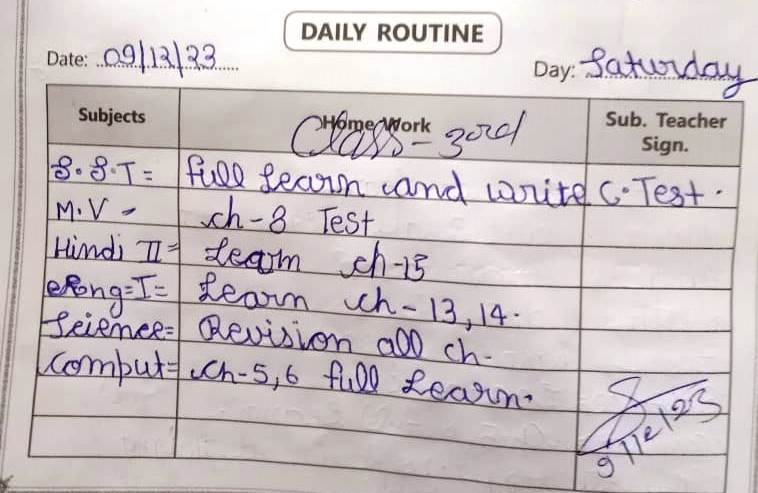 DAILY ROUTINE
Date: 09/12/23 Day: Saturday
Subjects Home Work Sub. Teacher Sign.
Class - 3rd
S.S.T = full Learn and write C. Test.
M.V - ch-8 Test
Hindi II = Learn ch-15
Eng = I = Learn ch-13, 14.
Science = Revision all ch-
Comput = ch-5, 6 full Learn.
9/12/23